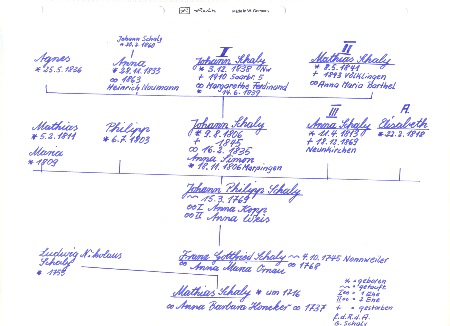 Johann Schaly
Agnes
* 25.5.1836
Anna
* 29.11.1833
∞ 1863
Heinrich Naumann
I
Johann Schaly
* 3.12.1838 Nw
+ 1910 Saarbr. 5
∞ Margarethe Ferdinand
II
Mathias Schaly
* 8.5.1841
+ 1893 Völklingen
∞ Anna Maria Barthel
Mathias
* 5.2.1811
Maria
* 1809
Philipp
* 6.7.1803
Johann Schaly
* 9.8.1806
+ 1845
∞ 16.2.1835
Anna Simon
* 18.11.1806 Marpingen
III
Anna Schaly
* 11.4.1813
+ 18.12.1869
Neunkirchen
A.
Elisabeth
* 22.2.1818
Johann Philipp Schaly
~ 15.3.1769
∞ I Anna Kopp
∞ II Anna
Ludwig Nikolaus
Schaly
Franz Gottfried Schaly ~ 9.10.1745 Nennweiler
∞ Anna Maria Ornau ∞ 1768
Mathias Schaly * um 1716
∞ Anna Barbara ∞ 1737
* = geboren
~ = getauft
I∞ = 1 Ehe
II∞ = 2 Ehe
+ = gestorben
f.d.R.d.A.
G. Schaly